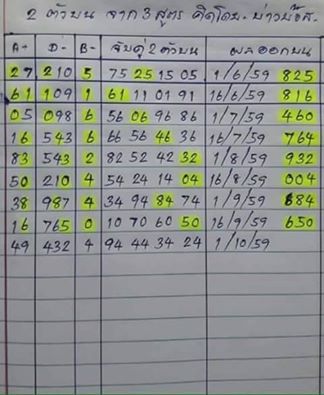 2 ตัวบน จาก 3 สูตร คิดโดย- บ่าวน้อย.
A+ D- B- จับคู่ 2 ตัวบน ผลออกบน
27 210 5 75 25 15 05 1/6/59 825
61 109 1 61 11 01 91 16/6/59 816
05 098 6 56 06 96 86 1/7/59 460
16 543 6 66 56 46 36 16/7/59 764
83 543 2 82 52 42 32 1/8/59 932
50 210 4 54 24 14 04 16/8/59 004
38 987 4 34 94 84 74 1/9/59 684
16 765 0 10 70 60 50 16/9/59 650
49 432 4 94 44 34 24 1/10/59